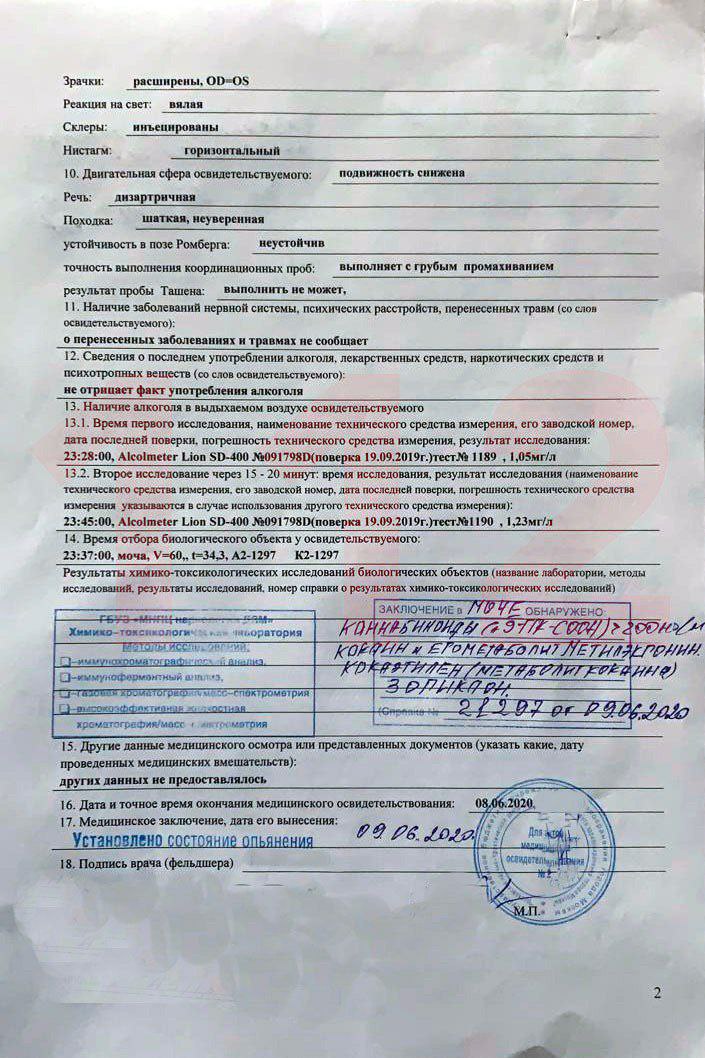 Зрачки: расширены, OD=OS
Реакция на свет: вялая
Склеры: инъецированы
Нистагм: горизонтальный
10. Двигательная сфера освидетельствуемого: подвижность снижена
Речь: дизартричная
Походка: шаткая, неуверенная
устойчивость в позе Ромберга: неустойчив
точность выполнения координационных проб: выполняет с грубым промахиванием
результат пробы Ташена: выполнить не может,
11. Наличие заболеваний нервной системы, психических расстройств, перенесенных травм (со слов
освидетельствуемого):
о перенесенных заболеваниях и травмах не сообщает
12. Сведения о последнем употреблении алкоголя, лекарственных средств, наркотических средств и
психотропных веществ (со слов освидетельствуемого):
не отрицает факт употребления алкоголя
13. Наличие алкоголя в выдыхаемом воздухе освидетельствуемого
13.1. Время первого исследования, наименование технического средства измерения, его заводской номер,
дата последней поверки, погрешность технического средства измерения, результат исследования:
23:28:00, Alcolmeter Lion SD-400 №091798D(поверка 19.09.2019г.)тест№ 1189 , 1,05мг/л
13.2. Второе исследование через 15 - 20 минут: время исследования, результат исследования (наименование
технического средства измерения, его заводской номер, дата последней поверки, погрешность технического средства
измерения указываются в случае использования другого технического средства измерения):
23:45:00, Alcolmeter Lion SD-400 №091798D(поверка 19.09.2019г.)тест№1190 , 1,23мг/л
14. Время отбора биологического объекта у освидетельствуемого:
23:37:00, моча, V=60,, t=34,3, А2-1297 К2-1297
Результаты химико-токсикологических исследований биологических объектов (название лаборатории, методы
исследований, результаты исследований, номер справки о результатах химико-токсикологических исследований)
ГБУЗ «МНПЦ наркологии ДЗМ»
Химико-токсикологическая лаборатория
Методы исследований:
иммунохроматографический анализ,
иммуноферментный анализ,
газовая хроматография/масс-спектрометрия
высокоэффективная жидкостная
хроматография/масс-спектрометрия
ЗАКЛЮЧЕНИЕ в МОЧЕ ОБНАРУЖЕНО:
КАННАБИНОИДЫ
КОКАИН и ЕГО МЕТАБОЛИТ МЕТИЛЭКГОНИН
КОКАЭТИЛЕН (МЕТАБОЛИТ КОКАИНА)
ЗОПИКЛОН.
(Справка № 21297 от 09.06.2020
15. Другие данные медицинского осмотра или представленных документов (указать какие, дату
проведенных медицинских вмешательств):
других данных не предоставлялось
16. Дата и точное время окончания медицинского освидетельствования: 08.06.2020,
17. Медицинское заключение, дата его вынесения:
Установлено состояние опьянения 09.06.2020.
18. Подпись врача (фельдшера)
Для актов
медицинского
освидетельствования
№ 2
М.П.
2
12